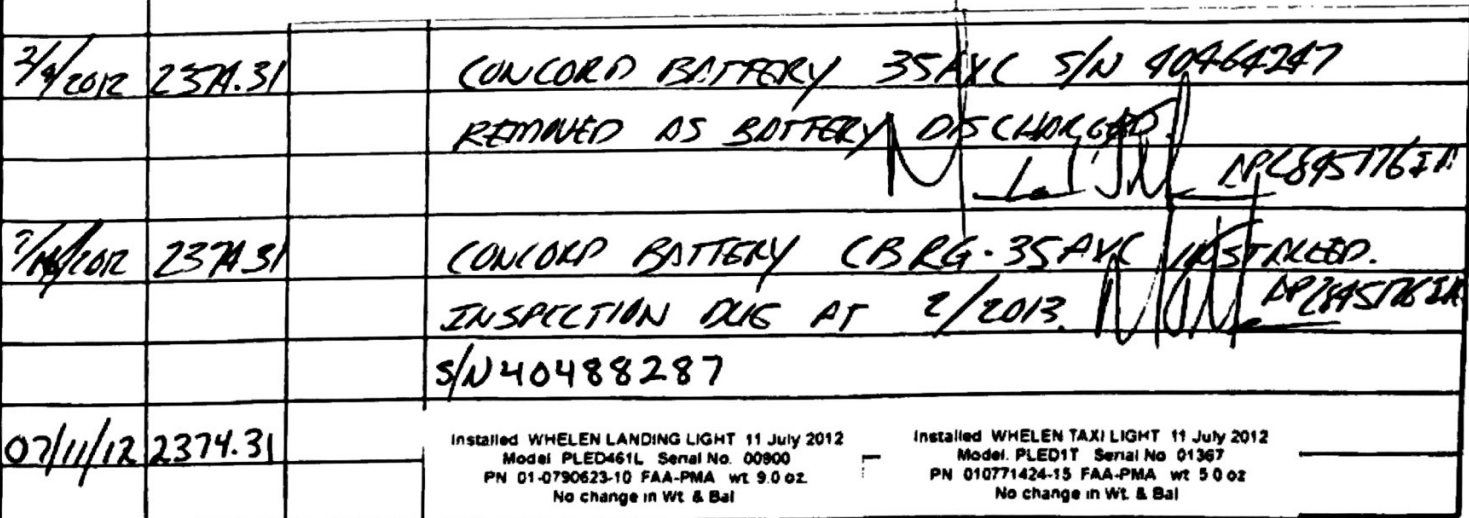 2/9/2012 2374.31 CONCORD BATTERY 35AXC S/N 40464247
REMOVED AS BATTERY DISCHARGED.
2374.31 CONCORD BATTERY CBRG-35AXC INSTALLED.
INSPECTION DUE AT 2/2013.
S/N 40488287
07/11/12 2374.31
Installed WHELEN LANDING LIGHT 11 July 2012
Model PLED461L Serial No. 00900
PN 01-0790623-10 FAA-PMA wt 9.0 oz
No change in Wt & Bal
Installed WHELEN TAXI LIGHT 11 July 2012
Model. PLED1T Serial No 01367
PN 010771424-15 FAA-PMA wt 5 0 oz
No change in Wt. & Bal